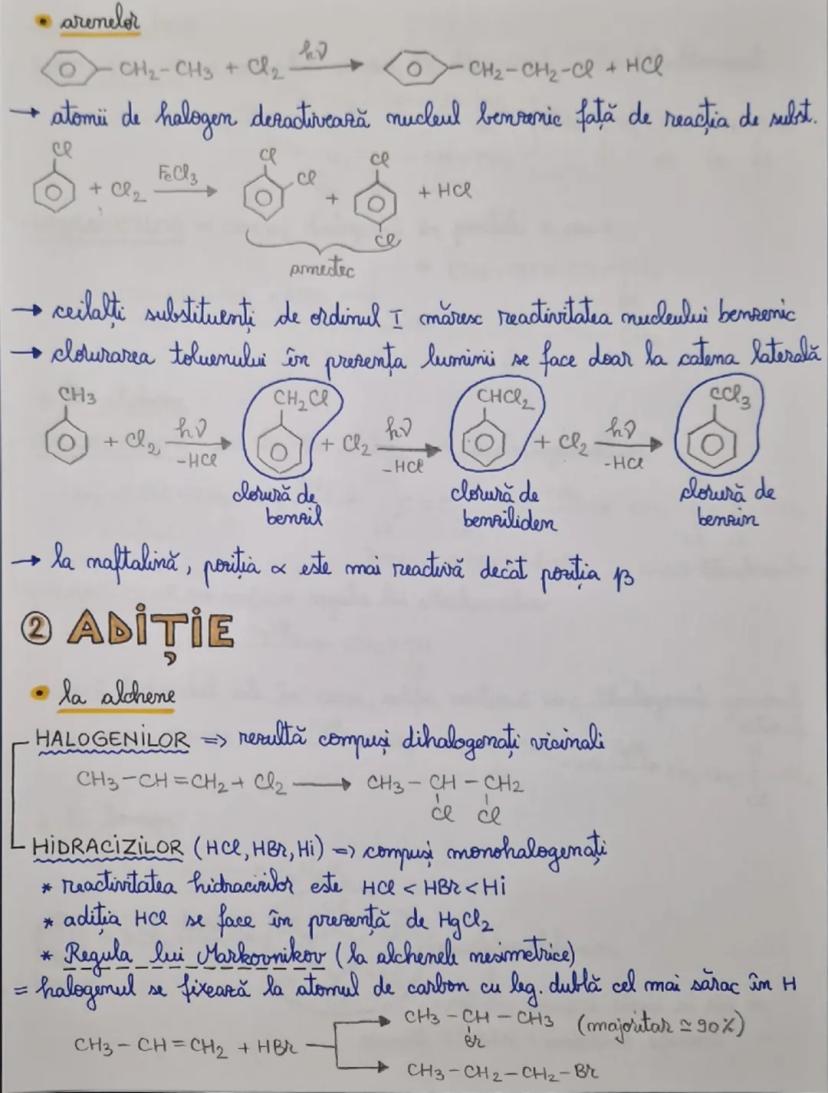 • arenelor
CH2-CH3 + Cl2 hν → CH2-CH2-Cl + HCl
→ atomii de halogen dezactivează nucleul benzenic față de reacția de subst.
Cl Cl Cl
+ Cl2 FeCl3 → Cl + + HCl
Cl
amestec
→ ceilalți substituenți de ordinul I măresc reactivitatea nucleului benzenic
→ clorurarea toluenului în prezența luminii se face doar la catena laterală
CH3 CH2Cl CHCl2 CCl3
+ Cl2 hν → -HCl + Cl2 hν → -HCl + Cl2 hν → -HCl
clorură de clorură de clorură de
benzil benziliden benzin
→ la naftalină, poziția α este mai reactivă decât poziția β
② ADIȚIE
• la alchene
HALOGENILOR => rezultă compuși dihalogenați vicinali
CH3-CH=CH2 + Cl2 → CH3-CH-CH2
Cl Cl
HIDRACIZILOR (HCl, HBr, Hi) => compuși monohalogenați
* reactivitatea hidracizilor este HCl < HBr < Hi
* adiția HCl se face în prezență de HgCl2
* Regula lui Markovnikov (la alchenele nesimetrice)
= halogenul se fixează la atomul de carbon cu leg. dublă cel mai sărac în H
CH3-CH-CH3 (majoritar ≃ 90%)
Br
CH3-CH=CH2 + HBr
CH3-CH2-CH2-Br